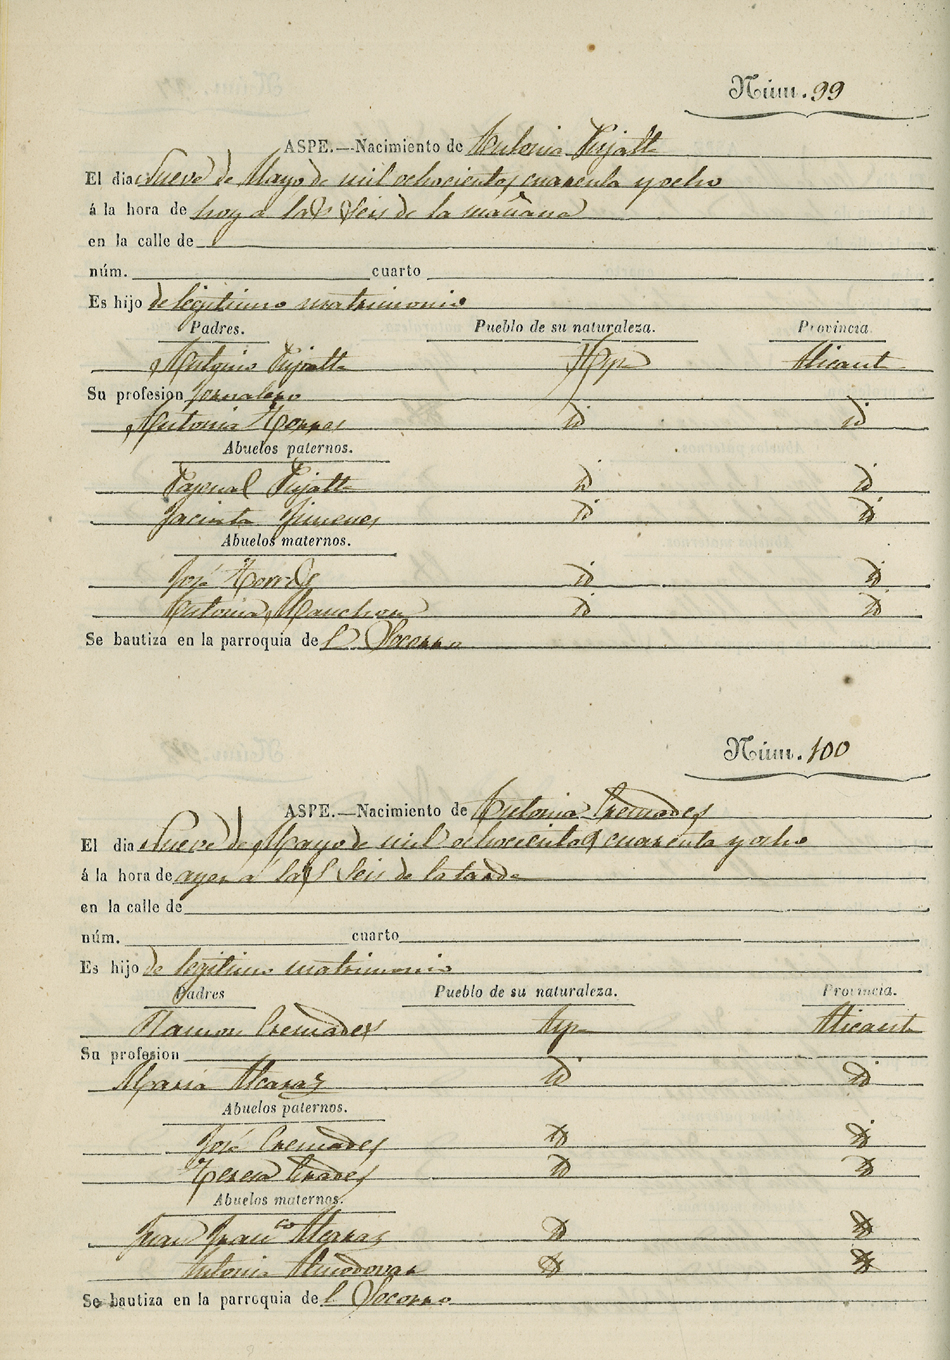 Núm. 99
ASPE.—Nacimiento de Antonia Pujalte
El dia Nueve de Mayo de mil ochocientos cuarenta y ocho
á la hora de hoy a las Seis de la mañana
en la calle de
núm. cuarto
Es hijo de legitimo matrimonio
Padres. Pueblo de su naturaleza. Provincia.
Antonio Pujalte Aspe Alicante
Su profesion Jornalero
Antonia Torres id id
Abuelos paternos.
Pascual Pujalte id id
Jacinta Jimenes id id
Abuelos maternos.
José Torres id id
Antonia Manchon id id
Se bautiza en la parroquia de l Socorro
Núm. 100
ASPE.—Nacimiento de Antonia Cremades
El dia Nueve de Mayo de mil ochocientos cuarenta y ocho
á la hora de ayer á las Seis de la tarde
en la calle de
núm. cuarto
Es hijo de legitimo matrimonio
Padres Pueblo de su naturaleza. Provincia.
Ramon Cremades Aspe Alicante
Su profesion
Maria Alcaraz id id
Abuelos paternos.
José Cremades id id
Teresa id id
Abuelos maternos.
Juan Franco Alcaraz id id
Antonia Almodovar id id
Se bautiza en la parroquia de l Socorro